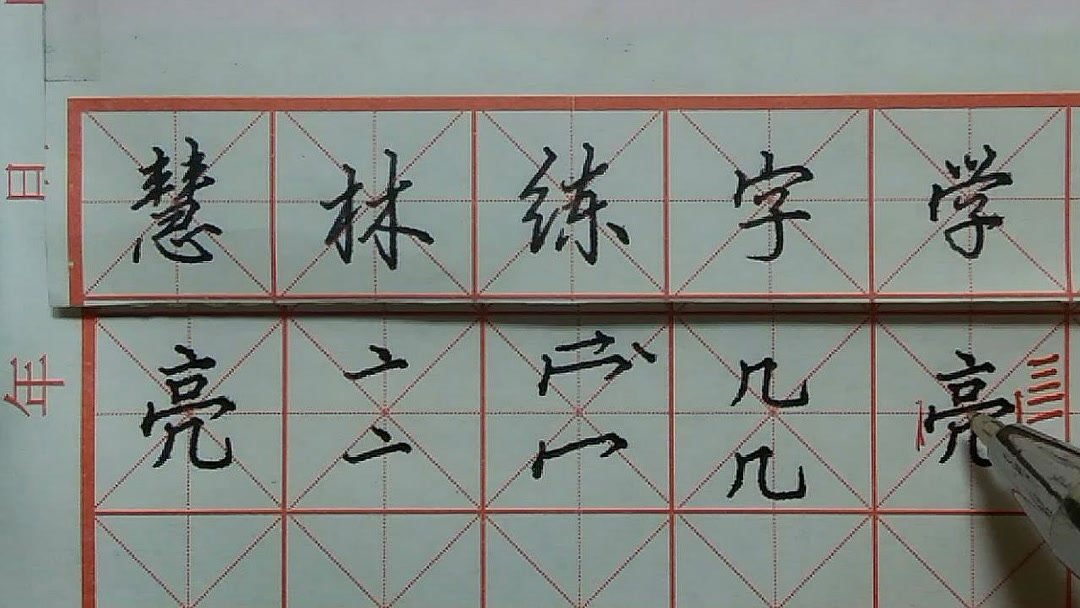 慧林练字学
亮亠冖几亮
亠冖几
日
年